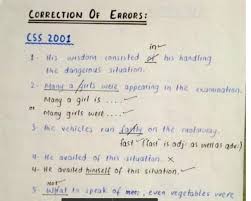 CORRECTION OF ERRORS:
CSS 2001
in
1- His wisdom consisted of his handling
the dangerous situation.
2- Many a girls were appearing in the examination.
Many a girl is ....
or
Many girls were ....
3- The vehicles run fastly on the motorway.
fast (fast is adj. as well as adv.)
4- He availed of this situation. ×
4- He availed himself of this situation. ✓
not
5- What to speak of men, even vegetables were